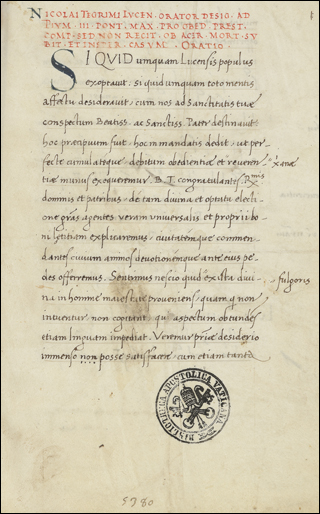 NICOLAI TEGRIMI LVCEN. ORATOR DESIG. AD
PIVM III PONT. MAX. PRO OBED. PREST.
COMP. SED NON RECIT. OB ACER. MORT. SV
BIT. ET INSTER. CASVM. ORATIO.
SI QVID umquam Lucensis populus
exoptavit: si quid umquam toto mentis
affectu desideravit, cum nos ad Sanctitatis tuæ
conspectum Beatiss. ac Sanctiss. Pater destinavit:
hoc præcipuum fuit, hoc in mandatis dedit, ut per-
fecte cumulateque debitum obedientiæ et reveren
tiæ munus exequeremur. B. T. congratulantes, Rmis
dominis et patribus, de tam divina et optata electi-
one gras agentes veram universalis et proprii bo
ni letitiam explicaremus: civitatemque commen-
dantes civium animos devotionemque ante eius pe-
des offerremus. Sentimus nescio quid ex ista divi-
na in homine maiestate proveniens, quam qui non
intuentur, non cogitant, qui aspectum obtundes
etiam linguam impediat. Veremur
desiderio
immenso non posse satisfacere, cum etiam tanta
fulgoris
BIBLIOTHECA APOSTOLICA VATICANA
5780